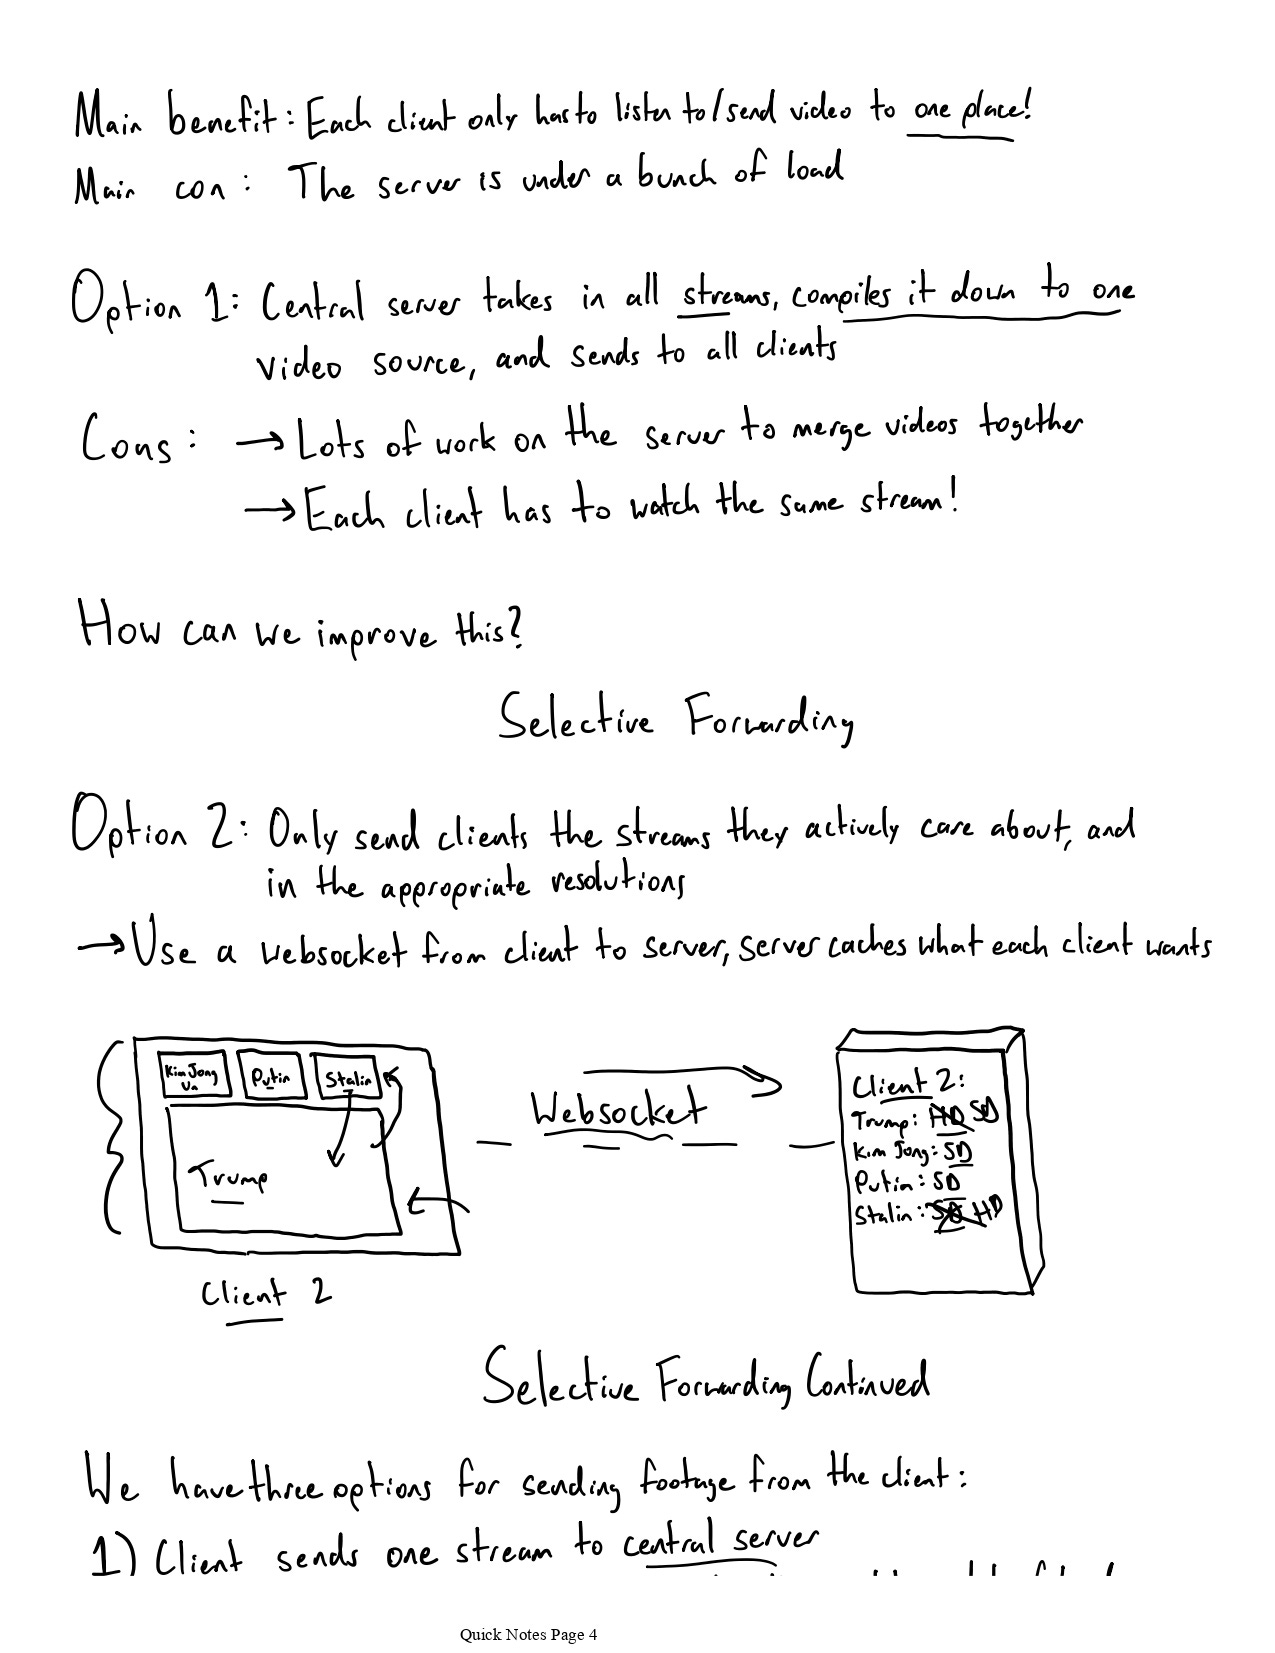 Main benefit: Each client only has to listen to/send video to one place!
Main con: The server is under a bunch of load
Option 1: Central server takes in all streams, compiles it down to one
video source, and sends to all clients
Cons: → Lots of work on the server to merge videos together
→ Each client has to watch the same stream!
How can we improve this?
Selective Forwarding
Option 2: Only send clients the streams they actively care about, and
in the appropriate resolutions
→ Use a websocket from client to server, server caches what each client wants
Kim Jong
Un
Putin
Stalin
Trump
Client 2
Websocket
Client 2:
Trump: HD SD
Kim Jong: SD
Putin: SD
Stalin: SD HD
Selective Forwarding Continued
We have three options for sending footage from the client:
1) Client sends one stream to central server
Quick Notes Page 4